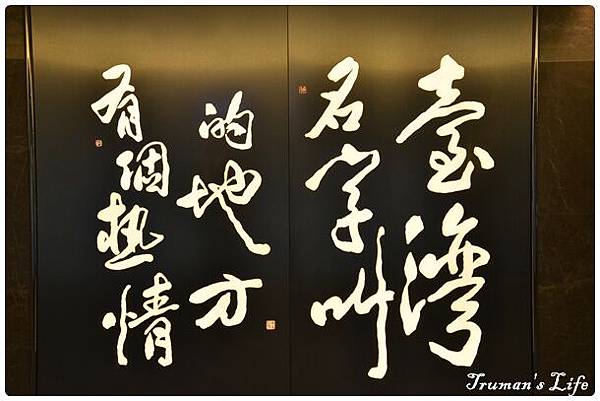 有個熱情
的地方
名字叫
臺灣
Truman's Life